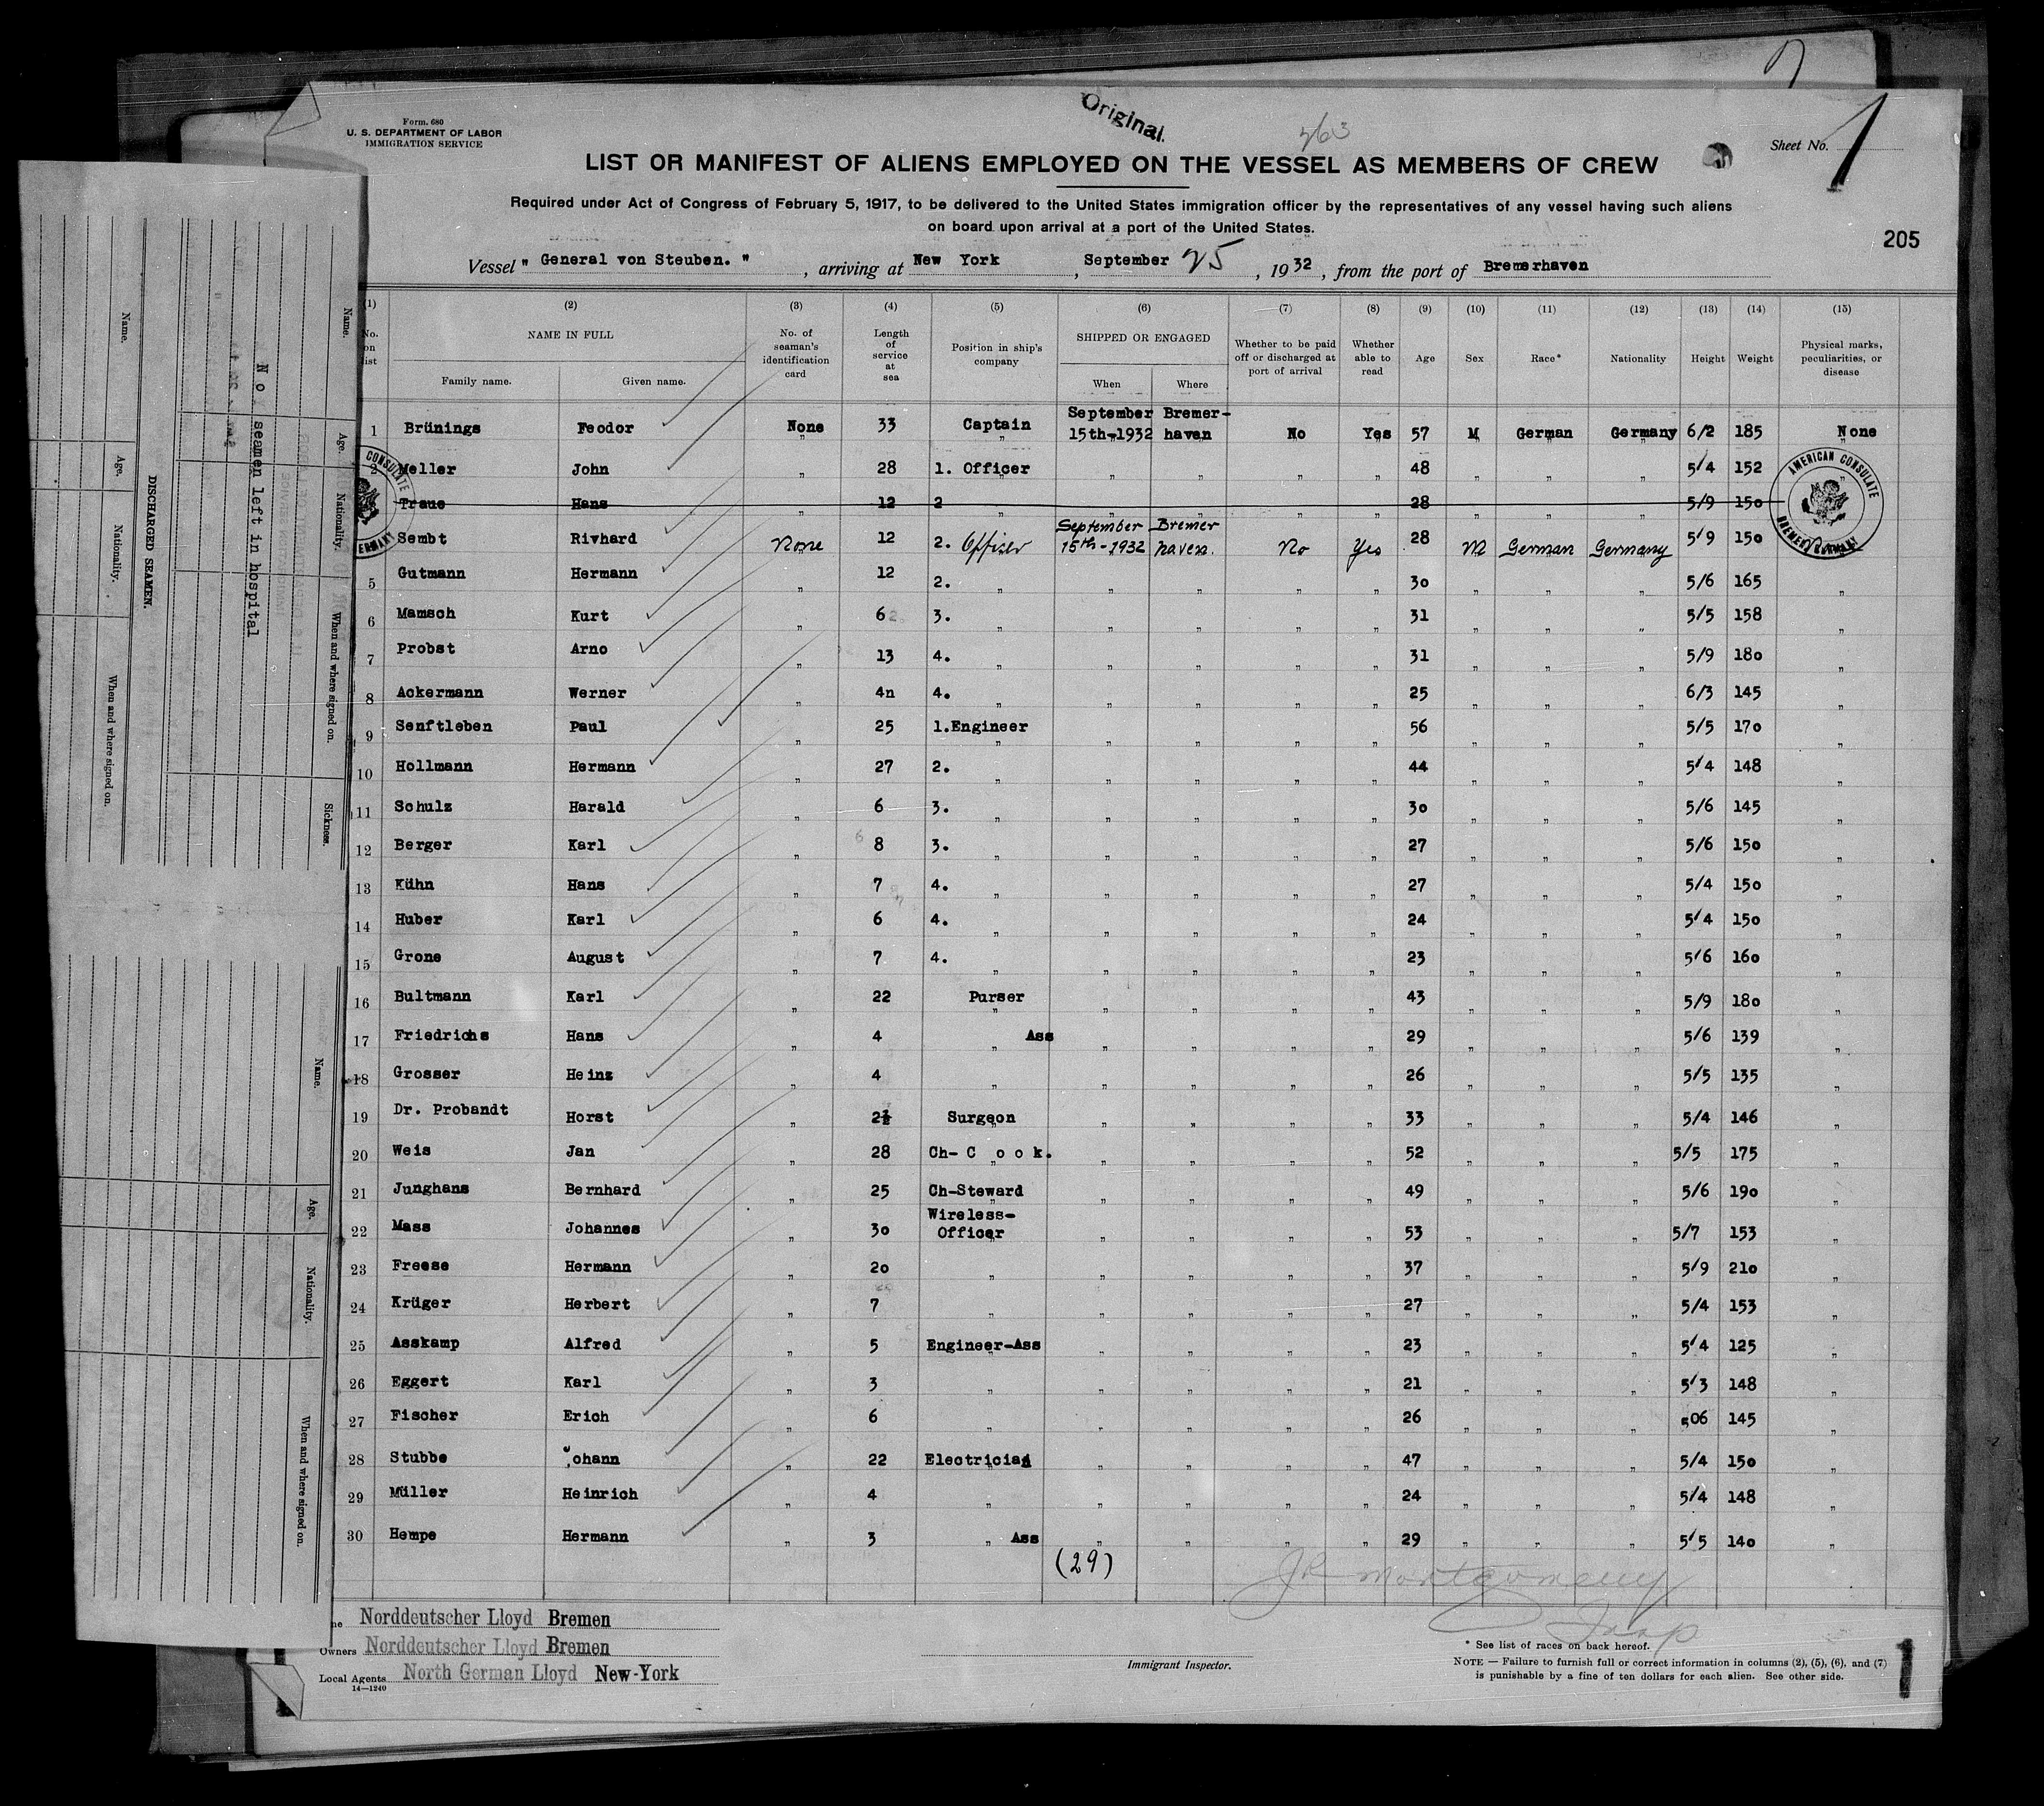 Original.
Form. 680
U. S. DEPARTMENT OF LABOR
IMMIGRATION SERVICE
Sheet No. 1
LIST OR MANIFEST OF ALIENS EMPLOYED ON THE VESSEL AS MEMBERS OF CREW
Required under Act of Congress of February 5, 1917, to be delivered to the United States immigration officer by the representatives of any vessel having such aliens
on board upon arrival at a port of the United States.
205
Vessel " General von Steuben. " , arriving at New York , September 25 , 1932 , from the port of Bremerhaven
(1) (2) (3) (4) (5) (6) (7) (8) (9) (10) (11) (12) (13) (14) (15)
No. on list NAME IN FULL Family name. Given name. No. of seaman's identification card Length of service at sea Position in ship's company SHIPPED OR ENGAGED When Where Whether to be paid off or discharged at port of arrival Whether able to read Age Sex Race* Nationality Height Weight Physical marks, peculiarities, or disease
1 Brünings Feodor None 33 Captain September 15th-1932 Bremerhaven No Yes 57 M German Germany 6/2 185 None
2 Meller John " 28 1. Officer " " " " 48 " " " 5/4 152 "
Traue Hans " 12 2 " " " " " 28 " " " 5/9 150
Sembt Rivhard None 12 2. Officer September 15th-1932 Bremer haven. No Yes 28 M German Germany 5/9 150
5 Gutmann Hermann " 12 2. " " " " " 30 " " " 5/6 165 "
6 Mamsch Kurt " 6 3. " " " " " 31 " " " 5/5 158 "
7 Probst Arno " 13 4. " " " " " 31 " " " 5/9 180 "
8 Ackermann Werner " 4n 4. " " " " " 25 " " " 6/3 145 "
9 Senftleben Paul " 25 1.Engineer " " " " 56 " " " 5/5 170 "
10 Hollmann Hermann " 27 2. " " " " " 44 " " " 5/4 148 "
11 Schulz Harald " 6 3. " " " " " 30 " " " 5/6 145 "
12 Berger Karl " 8 3. " " " " " 27 " " " 5/6 150 "
13 Kühn Hans " 7 4. " " " " " 27 " " " 5/4 150 "
14 Huber Karl " 6 4. " " " " " 24 " " " 5/4 150 "
15 Grone August " 7 4. " " " " " 23 " " " 5/6 160 "
16 Bultmann Karl " 22 Purser " " " " 43 " " " 5/9 180 "
17 Friedrichs Hans " 4 " Ass " " " " 29 " " " 5/6 139 "
18 Grosser Heinz " 4 " " " " " 26 " " " 5/5 135 "
19 Dr. Probandt Horst " 2½ Surgeon " " " " 33 " " " 5/4 146 "
20 Weis Jan " 28 Ch- C o o k. " " " " 52 " " " 5/5 175 "
21 Junghans Bernhard " 25 Ch-Steward " " " " 49 " " " 5/6 190 "
22 Mass Johannes " 30 Wireless-Officer " " " " 53 " " " 5/7 153 "
23 Freese Hermann " 20 " " " " " 37 " " " 5/9 210 "
24 Krüger Herbert " 7 " " " " " 27 " " " 5/4 153 "
25 Asskamp Alfred " 5 Engineer-Ass " " " " 23 " " " 5/4 125 "
26 Eggert Karl " 3 " " " " " 21 " " " 5/3 148 "
27 Fischer Erich " 6 " " " " " 26 " " " 506 145 "
28 Stubbe Johann " 22 Electrician " " " " 47 " " " 5/4 150 "
29 Müller Heinrich " 4 " " " " " 24 " " " 5/4 148 "
30 Hempe Hermann " 3 " Ass " " " " 29 " " " 5/5 140 "
(29)
AMERICAN CONSULATE
BREMEN, GERMANY
CONSULATE
GERMANY
JR Montgomery
Insp
Norddeutscher Lloyd Bremen
Owners Norddeutscher Lloyd Bremen
Local Agents North German Lloyd New-York
14—1240
Immigrant Inspector.
* See list of races on back hereof.
NOTE — Failure to furnish full or correct information in columns (2), (5), (6), and (7)
is punishable by a fine of ten dollars for each alien. See other side.
1
DISCHARGED SEAMEN.
Name. Age. Nationality. When and where signed on.
No seamen left in hospital
Name. Age. Nationality. When and where signed on. Sickness.
Name. Age. Nationality. When and where signed on.